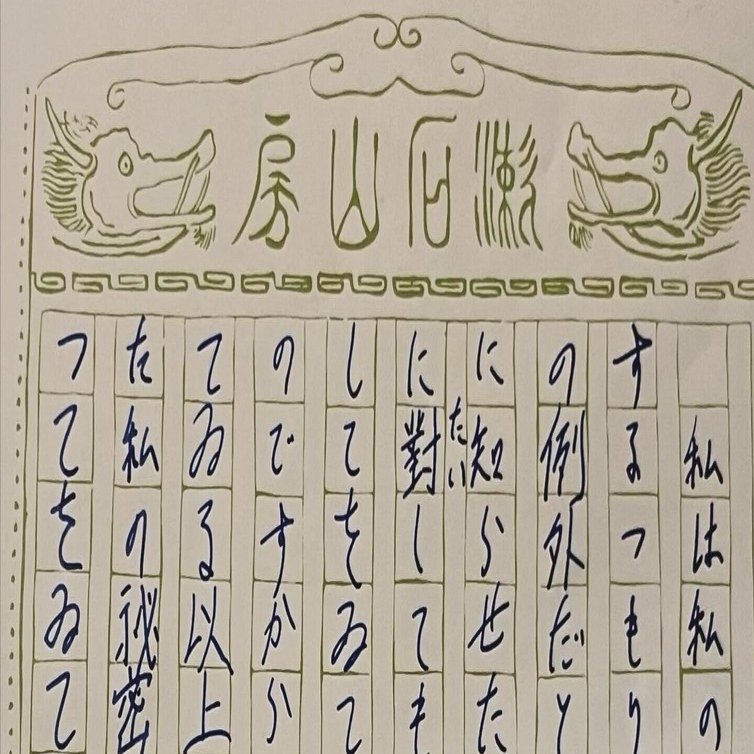 漱石山房
私は私の
するつもり
の例外だと
に知らせた
たい
に對しても
してをゐて
のですから
てゐる以上
た私の祕密
つてをゐて